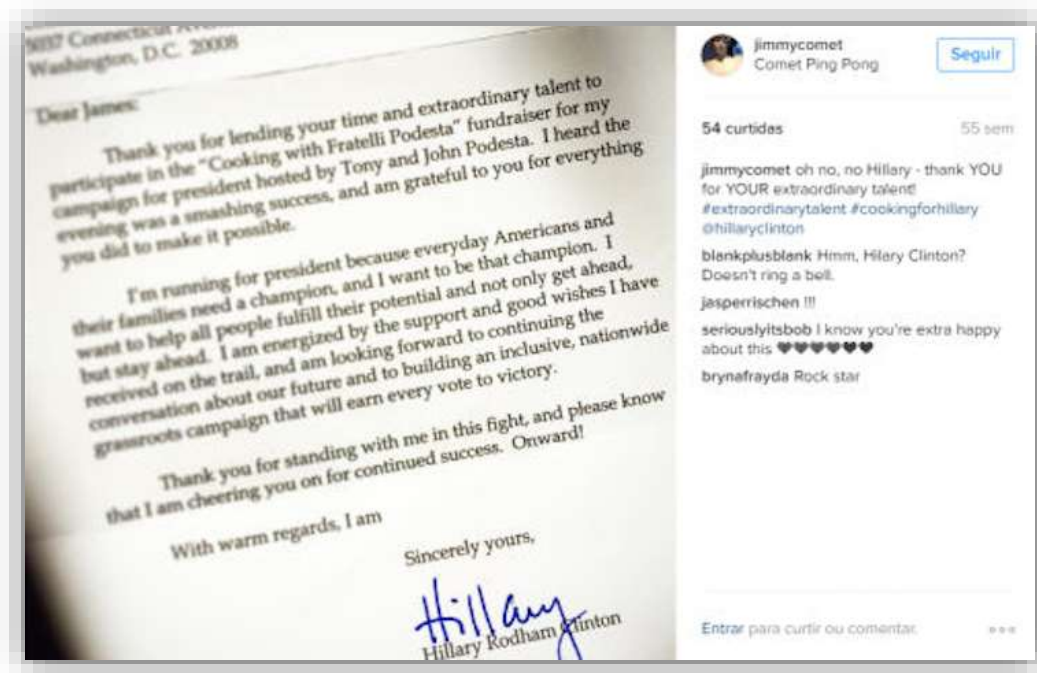 5037 Connecticut
Washington, D.C. 20008
Dear James:
Thank you for lending your time and extraordinary talent to
participate in the "Cooking with Fratelli Podesta" fundraiser for my
campaign for president hosted by Tony and John Podesta. I heard the
evening was a smashing success, and am grateful to you for everything
you did to make it possible.
I'm running for president because everyday Americans and
their families need a champion, and I want to be that champion. I
want to help all people fulfill their potential and not only get ahead,
but stay ahead. I am energized by the support and good wishes I have
received on the trail, and am looking forward to continuing the
conversation about our future and to building an inclusive, nationwide
grassroots campaign that will earn every vote to victory.
Thank you for standing with me in this fight, and please know
that I am cheering you on for continued success. Onward!
With warm regards, I am
Sincerely yours,
Hillary
Hillary Rodham Clinton
jimmycomet
Comet Ping Pong
Seguir
54 curtidas
55 sem
jimmycomet oh no, no Hillary - thank YOU
for YOUR extraordinary talent!
#extraordinarytalent #cookingforhillary
@hillaryclinton
blankplusblank Hmm, Hilary Clinton?
Doesn't ring a bell.
jasperrischen !!!
seriouslyitsbob I know you're extra happy
about this 🖤🖤🖤🖤🖤🖤
brynafrayda Rock star
Entrar para curtir ou comentar.